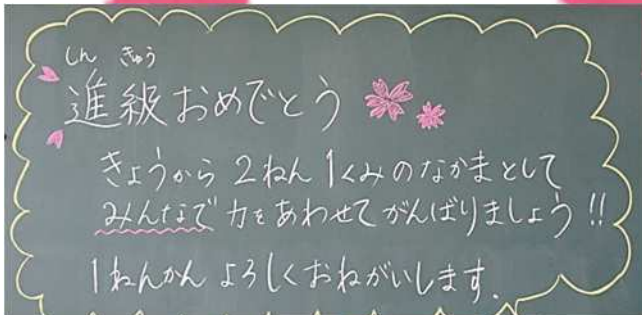 しん きゅう
進級おめでとう
きょうから 2ねん 1くみのなかまとして
みんなで 力をあわせて がんばりましょう!!
1ねんかん よろしくおねがいします.